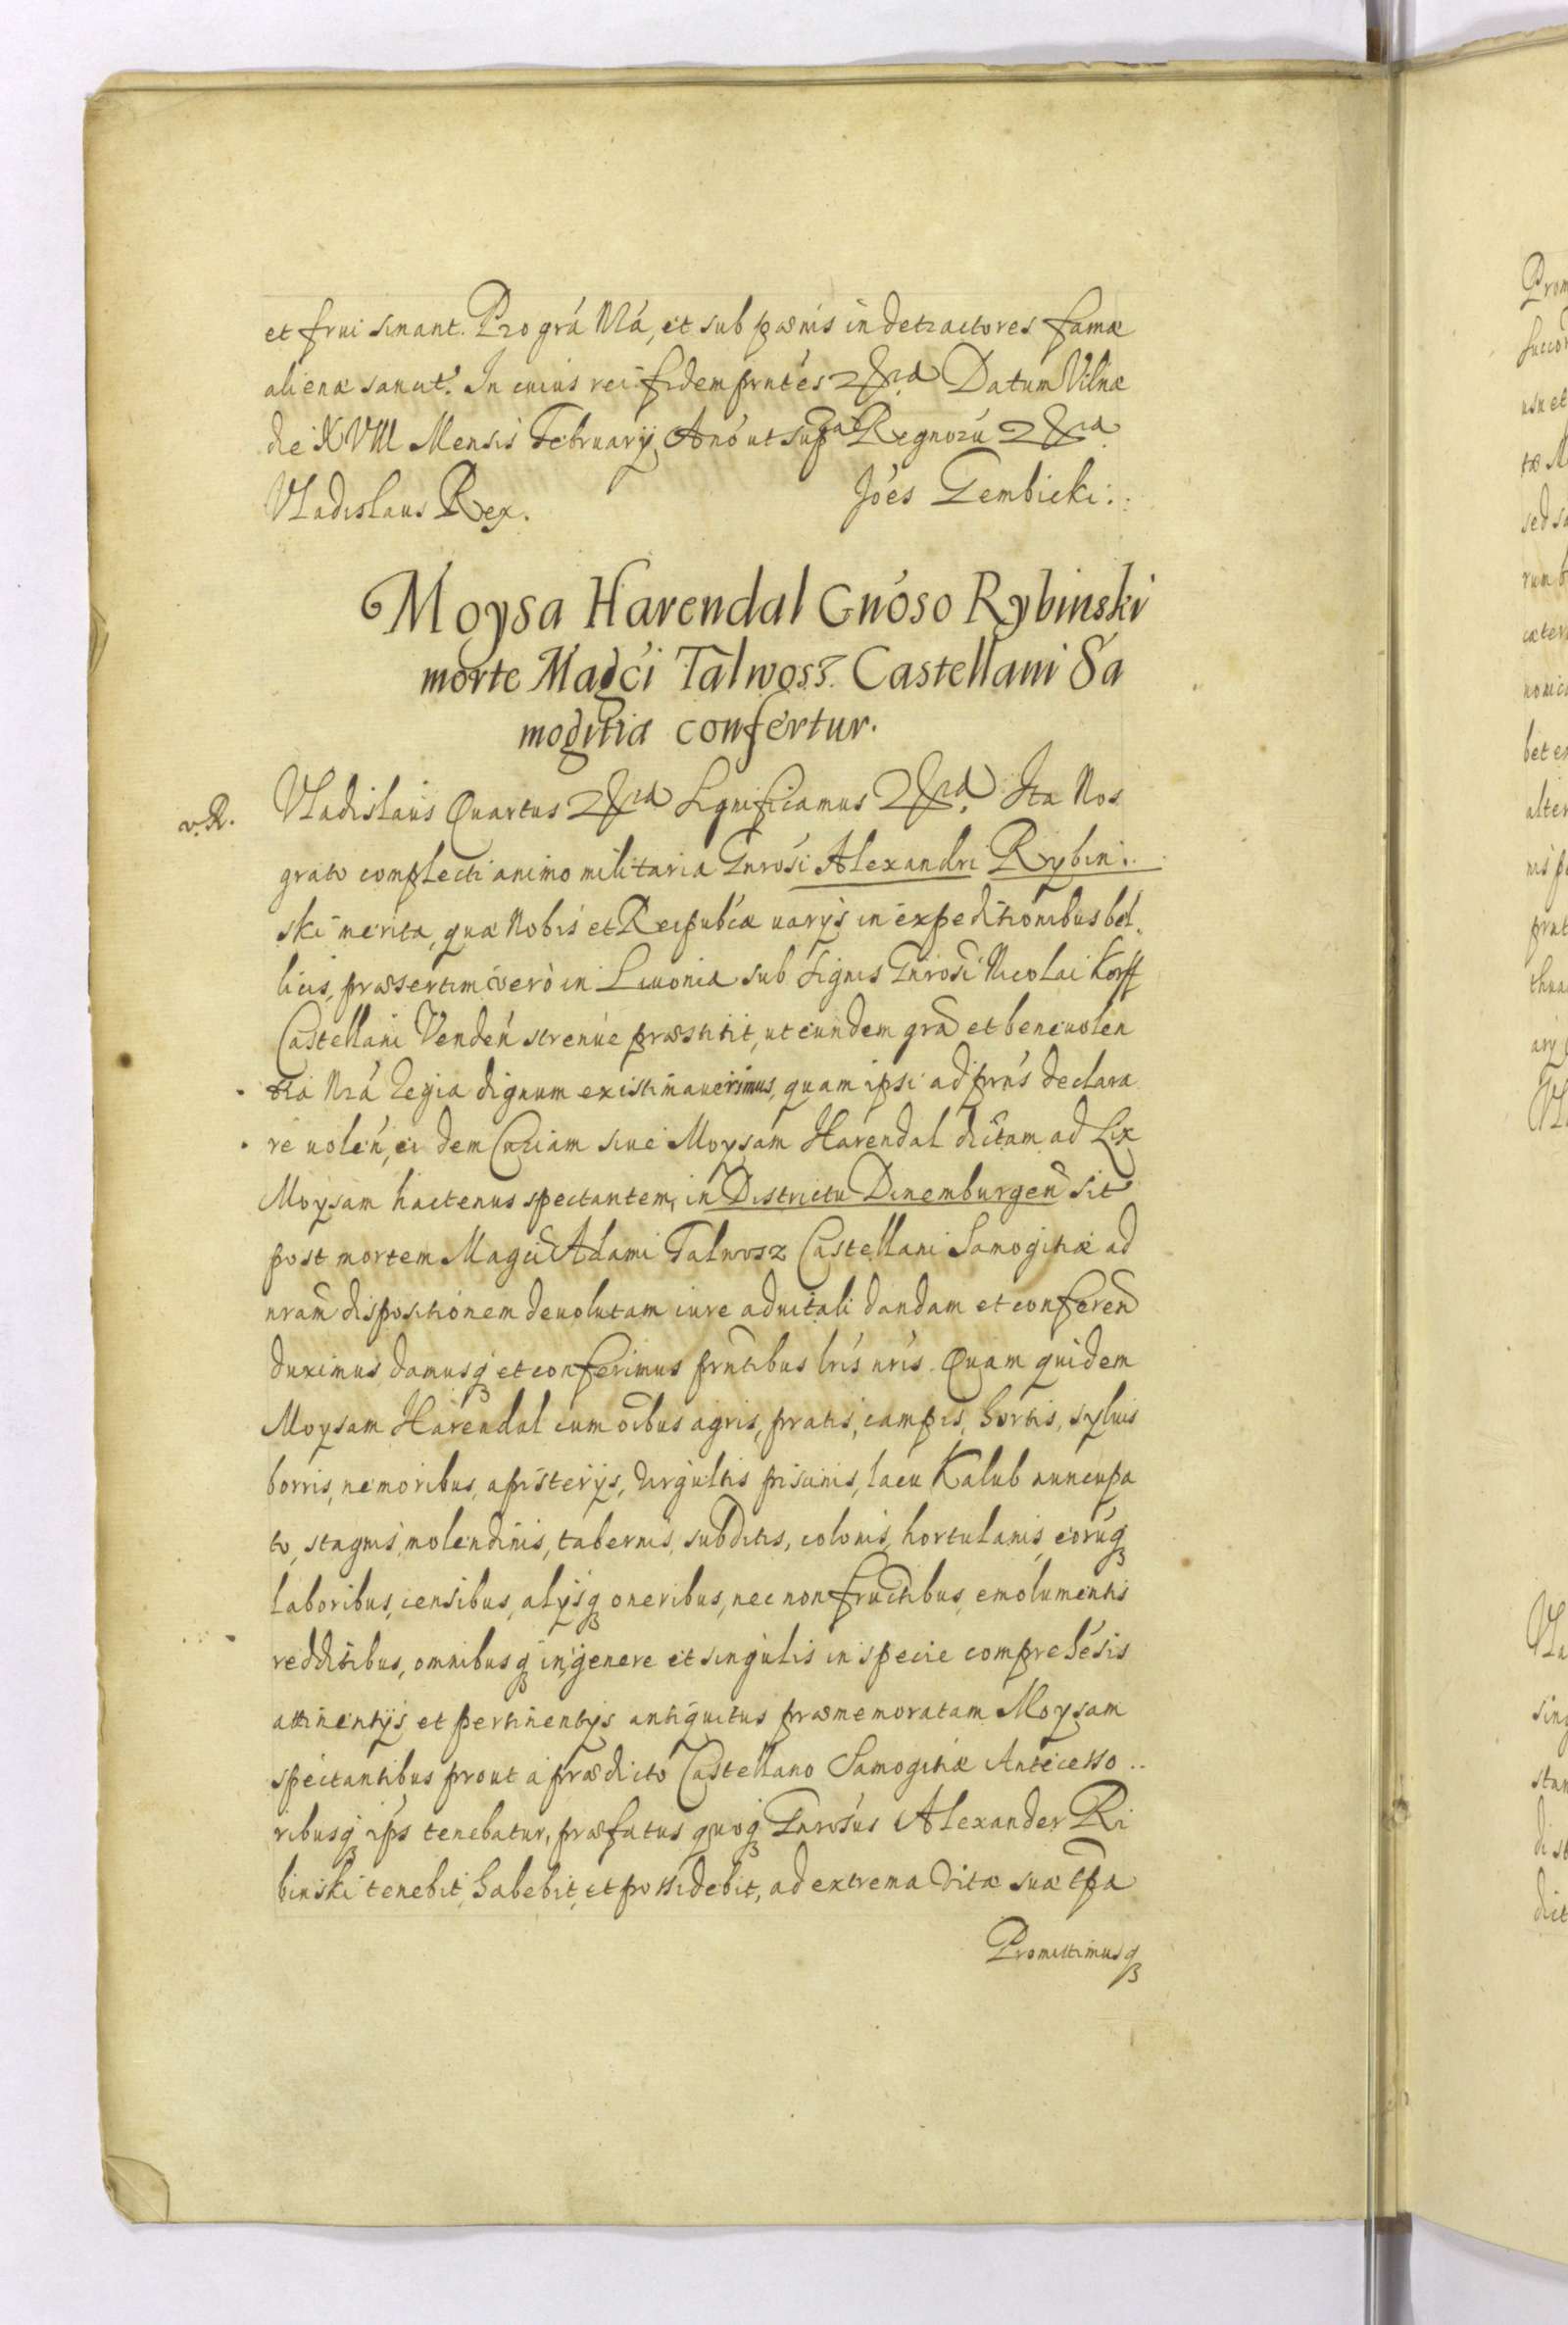 et frui sinant. Pro grá Nrá, et sub pœnis in detractores famæ
alienæ sancit. In cuius rei fidem prntés &c̃ra Datum Vilnæ
die XVIII Mensis February Anó ut supra Regnorú &c̃ra
Vladislaus Rex. Jóes Gembicki:.
Moysa Harendal Gnóso Rybinski
morte Magci Talwosz Castellani Sa
mogitia confertur.
v. R.
Vladislaus Quartus &c̃ra Significamus &c̃ra. Ita Nos
grato complecti animo militaria Gnrosi Alexandri Rybin:.
ski merita, quæ Nobis et Reipubcæ uarys in expeditionibus bel.
licis, præsertim vero in Liuonia sub signis Gnrosi Nicolai Korff
Castellani Venden strenue præstitit, ut eundem gra et beneuolen
tia Nrá Regia dignum existimauerimus, quam ipsi ad prns declara
re uolen, ei dem Curiam siue Moysam Harendal dictam ad Lix
Moysam hactenus spectantem, in Districtu Dinemburgen sit
post mortem Magci Adami Talwosz Castellani Samogitiæ ad
nram dispositionem deuolutam iure aduitali dandam et conferen
duximus damusq et conferimus prntibus lris nris. Quam quidem
Moysam Harendal cum oibus agris, pratis, campis, hortis, syluis
borris, nemoribus, apisterijs, virgultis piscinis, lacu Kalub nuncupa
to, stagnis, molendinis, tabernis, subditis, colonis, hortulanis, eorúq
laboribus, censibus, alysq oneribus, nec non fructibus, emolumentis
redditibus, omnibusq in genere et singulis in specie comprehésis
attinentijs et pertinentijs antiquitus præmemoratam Moysam
spectantibus prout a prædicto Castellano Samogitiæ Antecesso..
ribusq ips tenebatur, præfatus quoq Gnrosus Alexander Ri
binski tenebit, habebit, et possidebit, ad extrema vitæ suæ tpa
Promittimusq